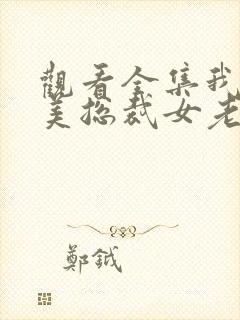 觀看全集我
美總裁女老
鄭鉞